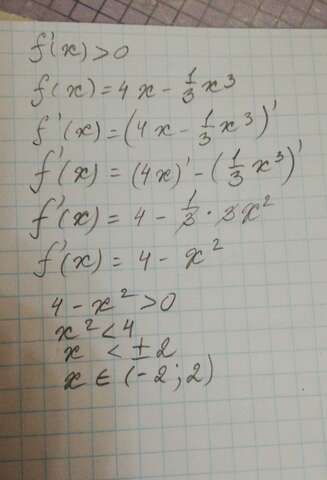 f'(x) > 0
f(x) = 4x - 1/3 x³
f'(x) = (4x - 1/3 x³)'
f'(x) = (4x)' - (1/3 x³)'
f'(x) = 4 - 1/3 · 3x²
f'(x) = 4 - x²
4 - x² > 0
x² < 4
x < ± 2
x ∈ (-2; 2)